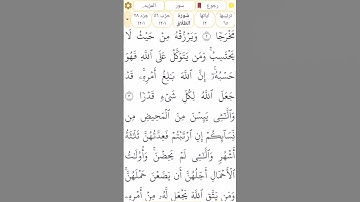 رجوع سور المزيد
ترتيبها ٦٥ آياتها ١٢ سورة الطلاق حزب ٥٦ جزء ٢٨
مَخْرَجًا ۝٢ وَيَرْزُقْهُ مِنْ حَيْثُ لَا
يَحْتَسِبُ ۚ وَمَن يَتَوَكَّلْ عَلَى ٱللَّهِ فَهُوَ
حَسْبُهُۥٓ ۚ إِنَّ ٱللَّهَ بَٰلِغُ أَمْرِهِۦ ۚ قَدْ
جَعَلَ ٱللَّهُ لِكُلِّ شَىْءٍ قَدْرًا ۝٣
وَٱلَّٰٓـِٔى يَئِسْنَ مِنَ ٱلْمَحِيضِ مِن
نِّسَآئِكُمْ إِنِ ٱرْتَبْتُمْ فَعِدَّتُهُنَّ ثَلَٰثَةُ
أَشْهُرٍ وَٱلَّٰٓـِٔى لَمْ يَحِضْنَ ۚ وَأُو۟لَٰتُ
ٱلْأَحْمَالِ أَجَلُهُنَّ أَن يَضَعْنَ حَمْلَهُنَّ ۚ
وَمَن يَتَّقِ ٱللَّهَ يَجْعَل لَّهُۥ مِنْ أَمْرِهِۦ